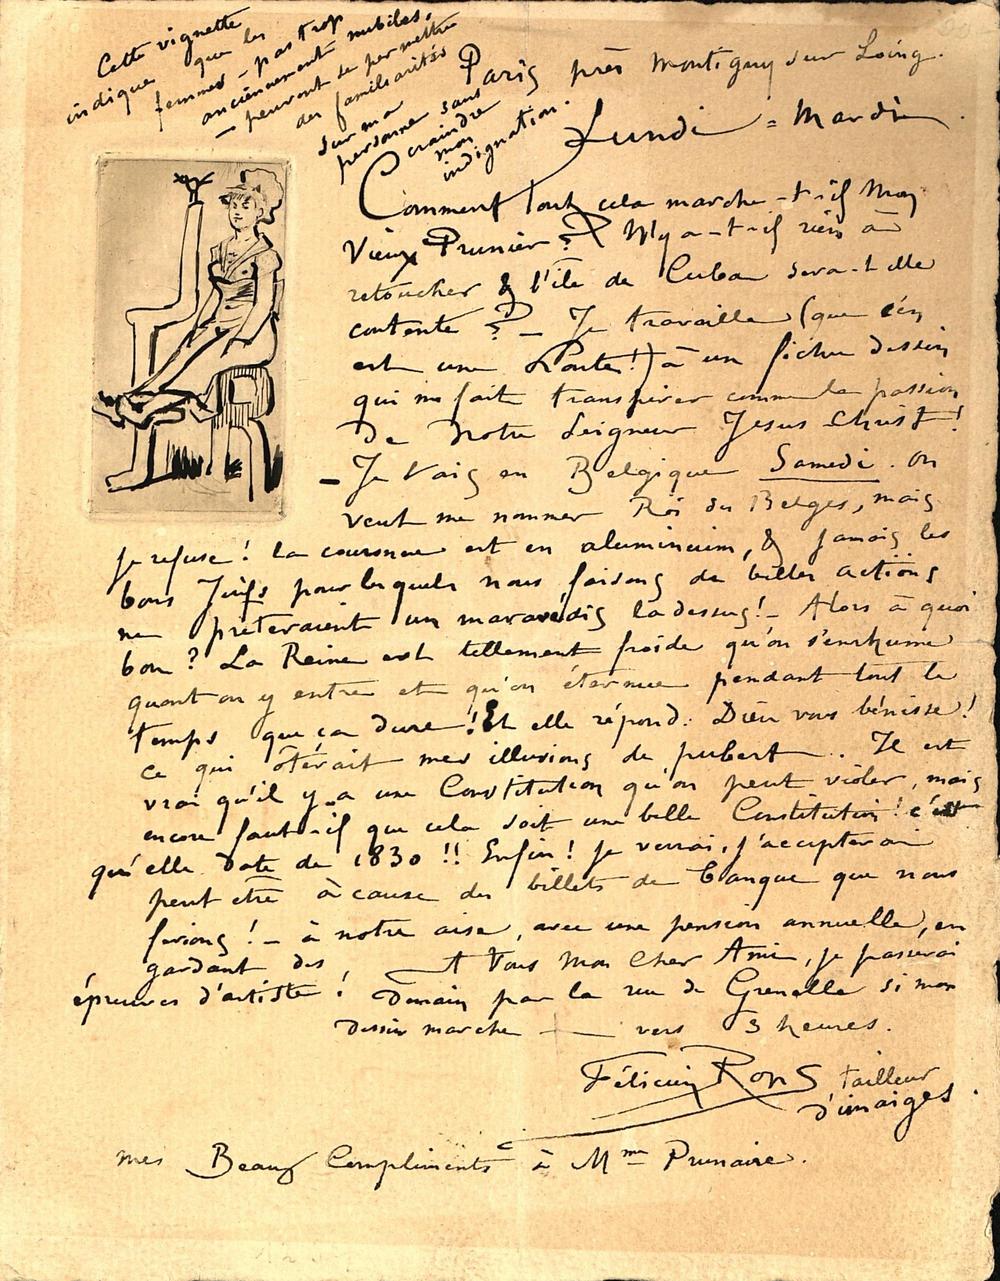 Cette vignette
indique que les
femmes – pas trop
anciennement nubiles,
– peuvent se permettre
des familiarités
sur ma
personne sans
craindre
mon
indignation.
Paris près Montigny sur Loing.
Lundi = Mardi
Comment tout cela marche-t-il Mon
Vieux Prunier? N'y a-t-il rien à
retoucher & l'île de Cuba sera-t-elle
contente? – Je travaille (que c'en
est une honte!) à un fichu dessin
qui me fait transpirer comme la passion
de Notre Seigneur Jesus Christ!
– Je Vais en Belgique Samedi. On
veut me nommer Roi des Belges, mais
je refuse! la couronne est en aluminium, & jamais les
bons Juifs pour lesquels nous faisons de belles actions
ne preteraient un maravédis la dessus! – Alors à quoi
bon? La Reine est tellement froide qu'on s'enrhume
quant on y entre et qu'on éternue pendant tout le
temps que ça dure! Et elle répond: Dieu vous bénisse!
ce qui ôterait mes illusions de pubert. Il est
vrai qu'il y a une Constitution qu'on peut violer, mais
encore faut-il que cela soit une belle Constitution! c'est
qu'elle date de 1830!! Enfin! je verrai, j'accepterai
peut etre à cause des billets de banque que nous
ferions! – à notre aise, avec une pension annuelle, en
gardant des
épreuves d'artiste!
A Vous Mon Cher Ami, je passerai
Demain par la rue de Grenelle si mon
dessin marche — vers 3 heures.
Félicien Rops tailleur
d'imaiges.
mes Beaux Compliments à Mme Prunaire.